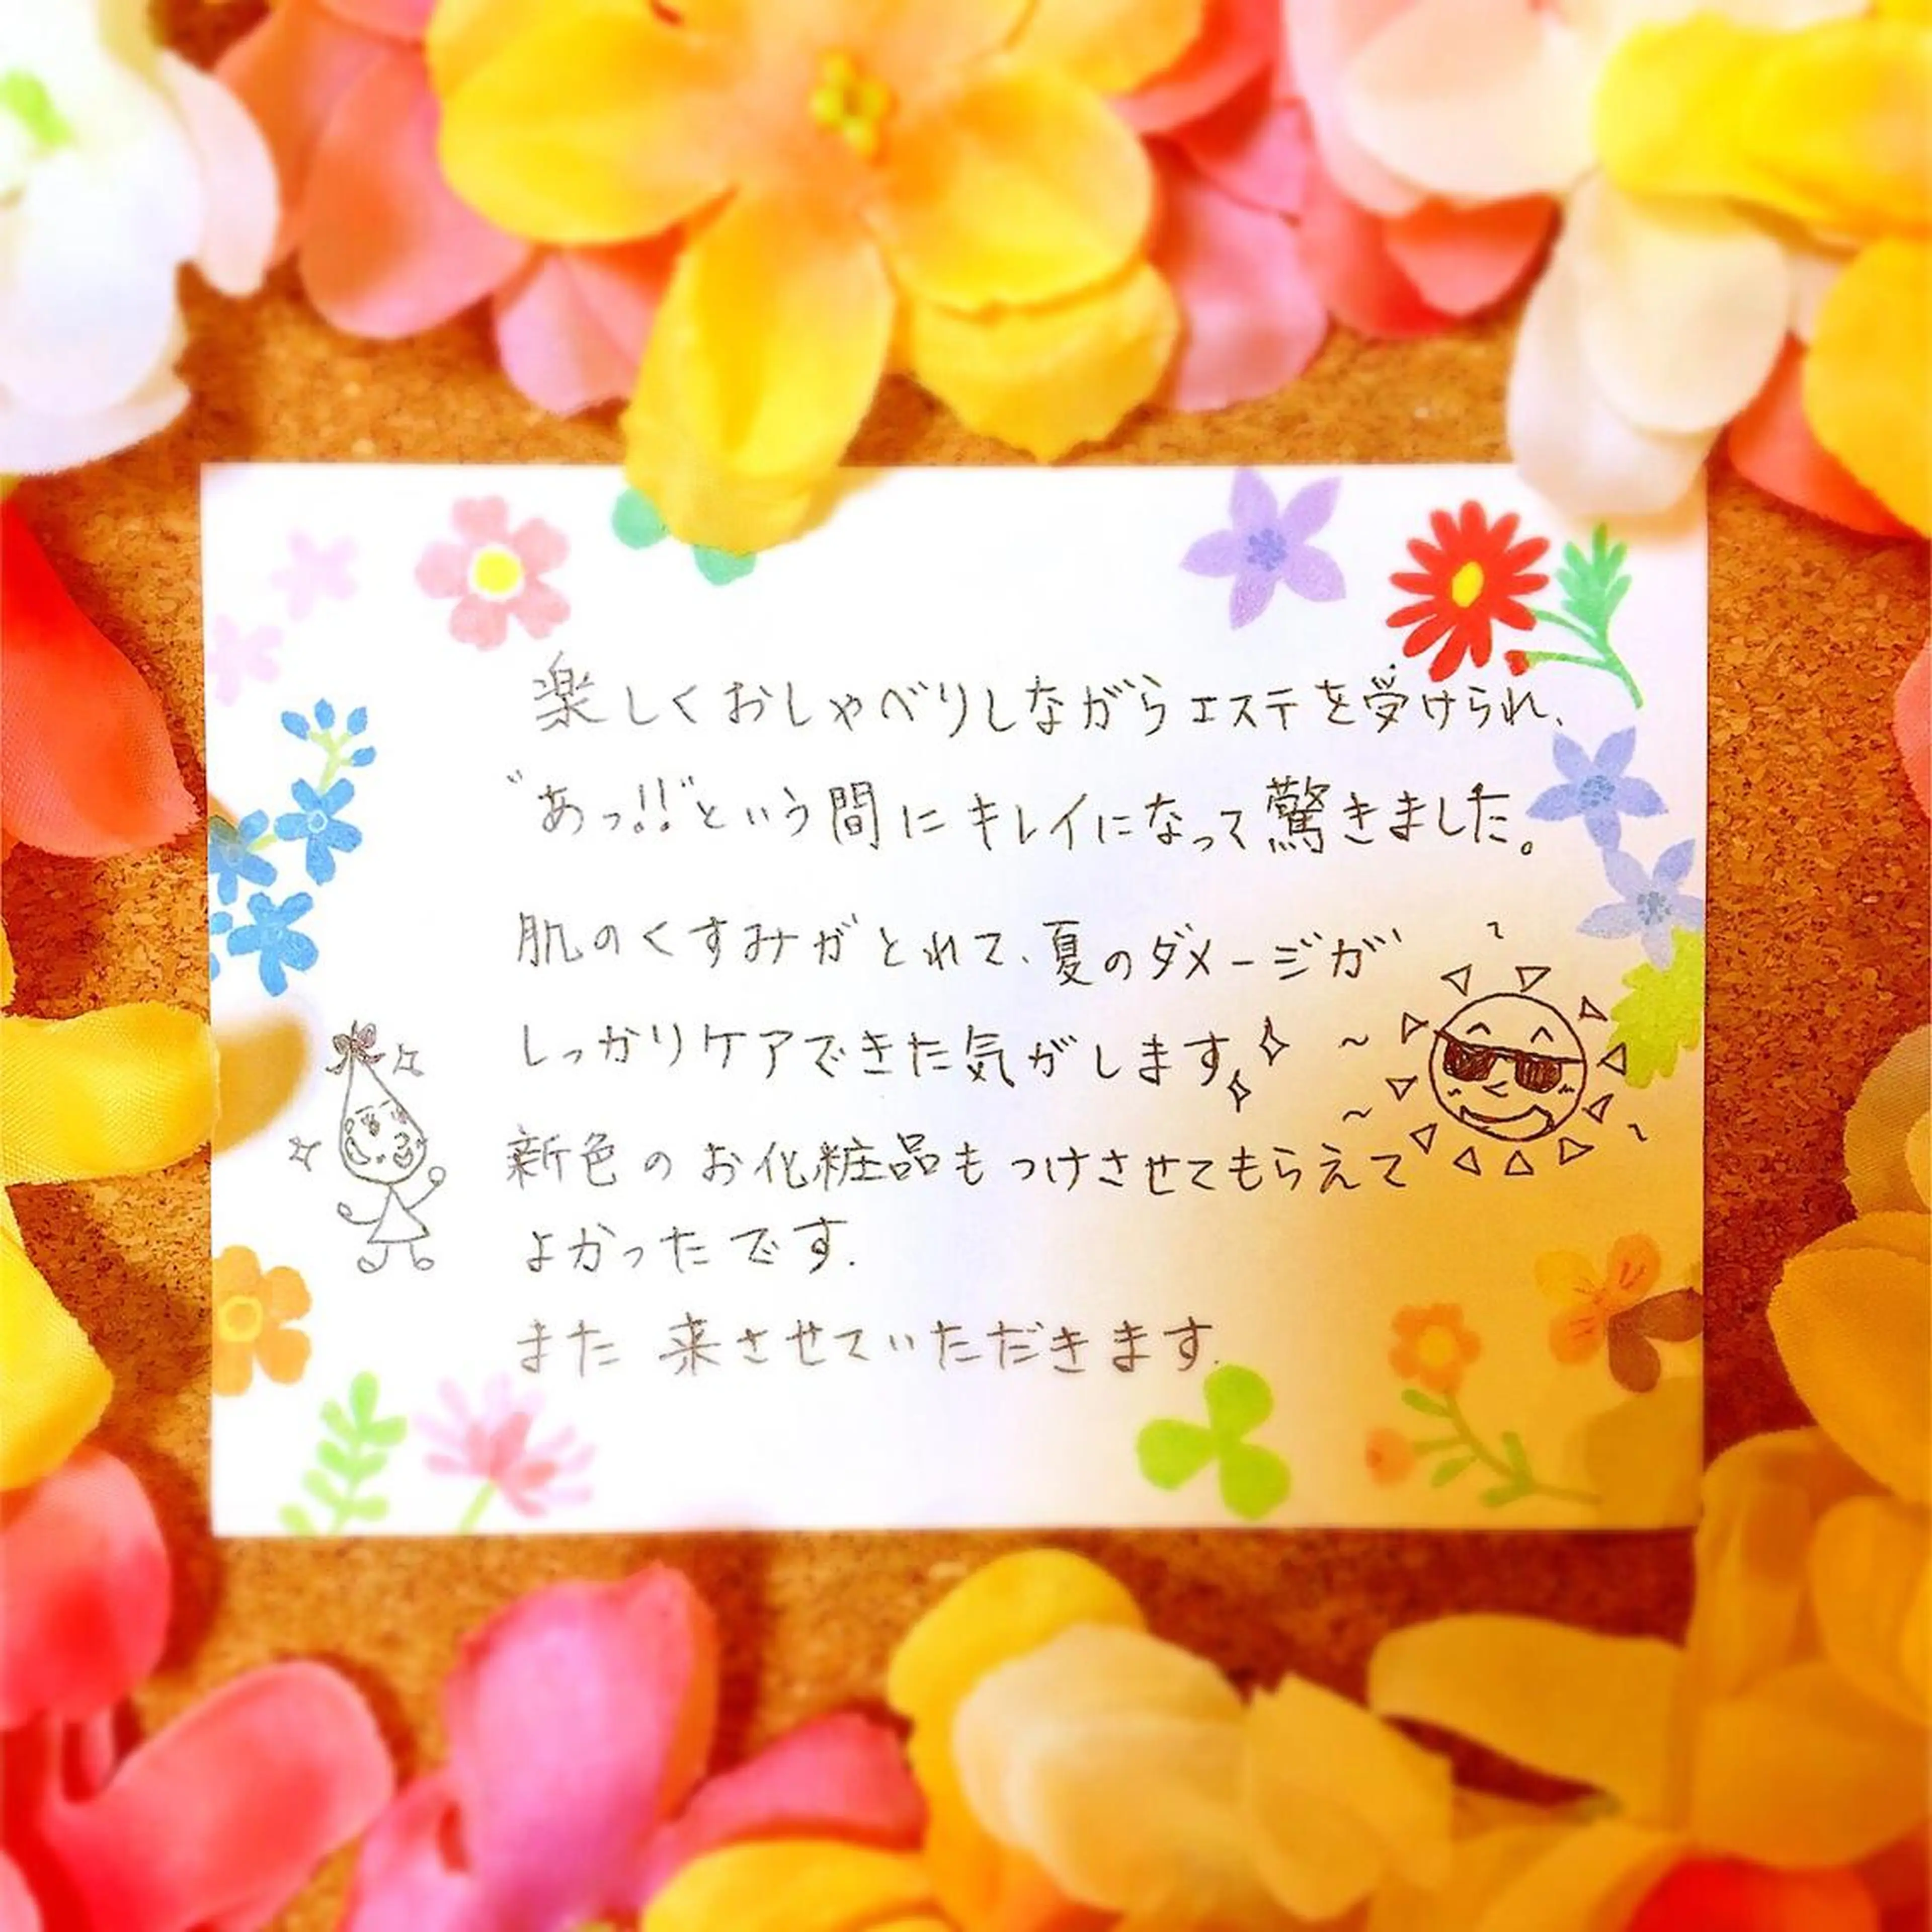 楽しくおしゃべりしながらエステを受けられ、
"あっ!!"という間にキレイになって驚きました。
肌のくすみがとれて、夏のダメージが
しっかりケアできた気がします
新色のお化粧品もつけさせてもらえて
よかったです.
また来させていただきます.